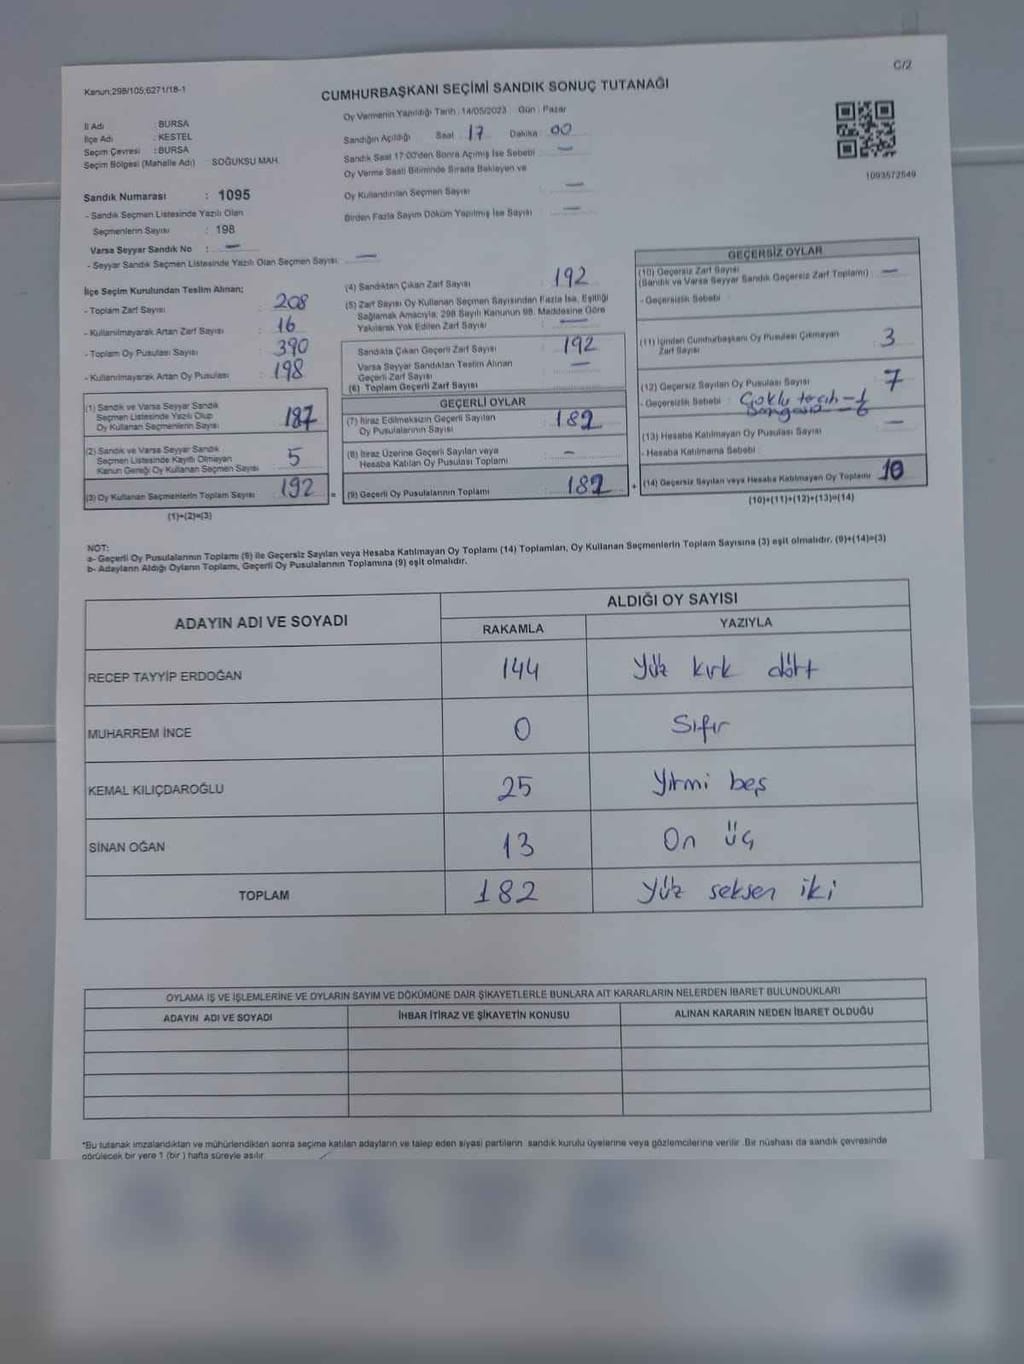 C/2
Kanun:298/105;6271/18-1
CUMHURBAŞKANI SEÇİMİ SANDIK SONUÇ TUTANAĞI
İl Adı : BURSA
İlçe Adı : KESTEL
Seçim Çevresi : BURSA
Seçim Bölgesi (Mahalle Adı) SOĞUKSU MAH.
Oy Vermenin Yapıldığı Tarih : 14/05/2023 Gün : Pazar
Sandığın Açıldığı Saat 17 Dakika 00
Sandık Saat 17:00'den Sonra Açılmış İse Sebebi —
Oy Verme Saati Bitiminde Sırada Bekleyen ve
Oy Kullandırılan Seçmen Sayısı —
Birden Fazla Sayım Döküm Yapılmış İse Sayısı —
1093572549
Sandık Numarası : 1095
- Sandık Seçmen Listesinde Yazılı Olan
Seçmenlerin Sayısı : 198
Varsa Seyyar Sandık No : —
- Seyyar Sandık Seçmen Listesinde Yazılı Olan Seçmen Sayısı: —
İlçe Seçim Kurulundan Teslim Alınan;
- Toplam Zarf Sayısı : 208
- Kullanılmayarak Artan Zarf Sayısı : 16
- Toplam Oy Pusulası Sayısı : 390
- Kullanılmayarak Artan Oy Pusulası : 198
(1) Sandık ve Varsa Seyyar Sandık
Seçmen Listesinde Yazılı Olup
Oy Kullanan Seçmenlerin Sayısı 187
(2) Sandık ve Varsa Seyyar Sandık
Seçmen Listesinde Kayıtlı Olmayan
Kanun Gereği Oy Kullanan Seçmen Sayısı 5
(3) Oy Kullanan Seçmenlerin Toplam Sayısı 192
(1)+(2)=(3)
(4) Sandıktan Çıkan Zarf Sayısı : 192
(5) Zarf Sayısı Oy Kullanan Seçmen Sayısından Fazla İse, Eşitliği
Sağlamak Amacıyla, 298 Sayılı Kanunun 98. Maddesine Göre
Yakılarak Yok Edilen Zarf Sayısı —
Sandıkta Çıkan Geçerli Zarf Sayısı 192
Varsa Seyyar Sandıktan Teslim Alınan
Geçerli Zarf Sayısı —
(6) Toplam Geçerli Zarf Sayısı
GEÇERLİ OYLAR
(7) İtiraz Edilmeksizin Geçerli Sayılan
Oy Pusulalarının Sayısı 182
(8) İtiraz Üzerine Geçerli Sayılan veya
Hesaba Katılan Oy Pusulası Toplamı —
= (9) Geçerli Oy Pusulalarının Toplamı 182
GEÇERSİZ OYLAR
(10) Geçersiz Zarf Sayısı
(Sandık ve Varsa Seyyar Sandık Geçersiz Zarf Toplamı) —
- Geçersizlik Sebebi
(11) İçinden Cumhurbaşkanı Oy Pusulası Çıkmayan
Zarf Sayısı 3
(12) Geçersiz Sayılan Oy Pusulası Sayısı 7
- Geçersizlik Sebebi Çoklu tercih
(13) Hesaba Katılmayan Oy Pusulası Sayısı —
- Hesaba Katılmama Sebebi
+ (14) Geçersiz Sayılan veya Hesaba Katılmayan Oy Toplamı 10
(10)+(11)+(12)+(13)=(14)
NOT:
a- Geçerli Oy Pusulalarının Toplamı (9) ile Geçersiz Sayılan veya Hesaba Katılmayan Oy Toplamı (14) Toplamları, Oy Kullanan Seçmenlerin Toplam Sayısına (3) eşit olmalıdır. (9)+(14)=(3)
b- Adayların Aldığı Oyların Toplamı, Geçerli Oy Pusulalarının Toplamına (9) eşit olmalıdır.
ADAYIN ADI VE SOYADI ALDIĞI OY SAYISI
RAKAMLA YAZIYLA
RECEP TAYYİP ERDOĞAN 144 Yüz kırk dört
MUHARREM İNCE 0 Sıfır
KEMAL KILIÇDAROĞLU 25 Yirmi beş
SİNAN OĞAN 13 On üç
TOPLAM 182 Yüz seksen iki
OYLAMA İŞ VE İŞLEMLERİNE VE OYLARIN SAYIM VE DÖKÜMÜNE DAİR ŞİKAYETLERLE BUNLARA AİT KARARLARIN NELERDEN İBARET BULUNDUKLARI
ADAYIN ADI VE SOYADI İHBAR İTİRAZ VE ŞİKAYETİN KONUSU ALINAN KARARIN NEDEN İBARET OLDUĞU
*Bu tutanak imzalandıktan ve mühürlendikten sonra seçime katılan adayların ve talep eden siyasi partilerin sandık kurulu üyelerine veya gözlemcilerine verilir. Bir nüshası da sandık çevresinde
görülecek bir yere 1 (bir) hafta süreyle asılır.